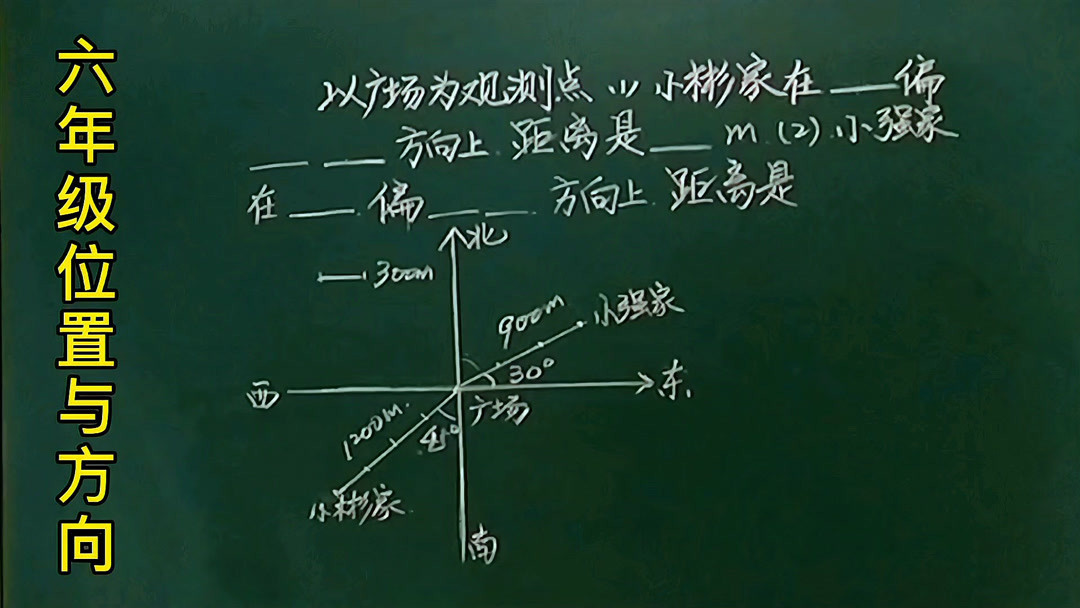 六年级位置与方向
以广场为观测点 (1) 小彬家在____偏
____ ____ 方向上. 距离是____ m. (2). 小强家
在 ____ 偏 ____ ____ 方向上. 距离是
北
300m
900m
小强家
30°
西
东
广场
1200m.
45°
小彬家
南